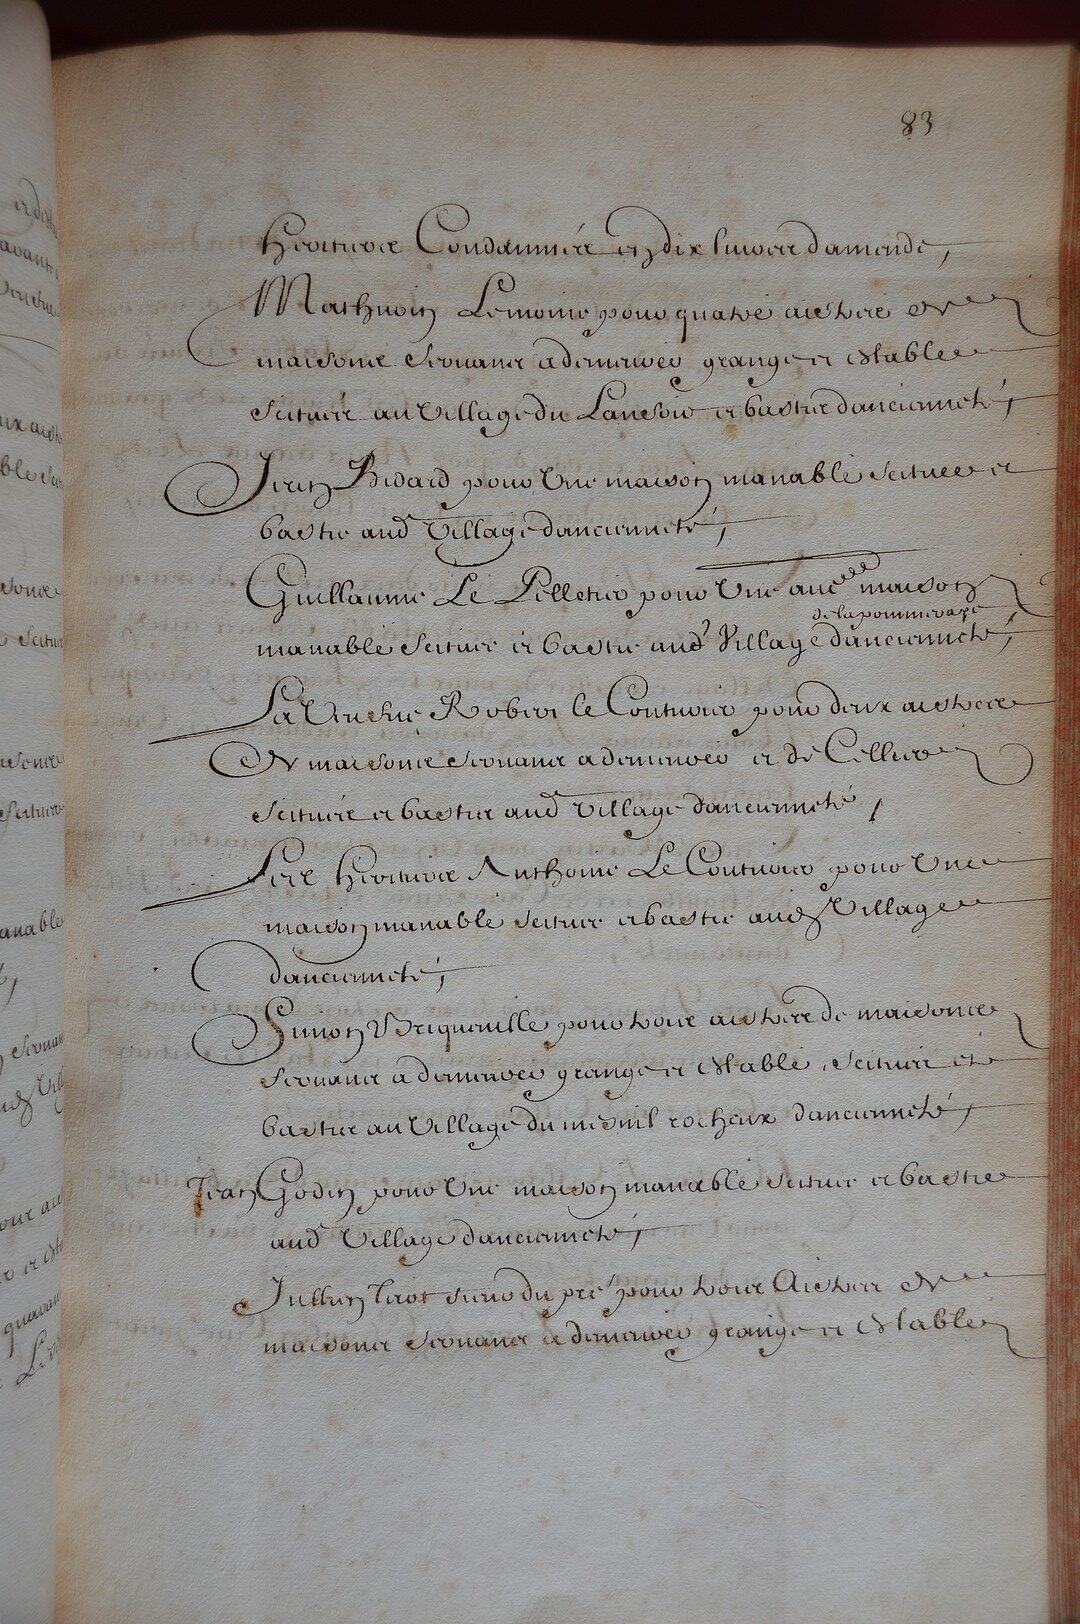 83
heritiers Condamnéz en dix livres damende,
Mathurin Lemoine pour quatre aistres de
maisons servans a demeurer grange et estable
scituéz au Village du et bastis dancienneté,
Jean Bidard pour Une maison manable scituee et
bastie aud Village dancienneté,
Guillaume Le Pelletier pour Une maison
de la pommeraye
manable scituee et bastie aud Village dancienneté,
La Veufve Robert le Couturier pour deux aistres
de maisons servans a demeurer et de Cellier
scituéz et bastis aud Village dancienneté,
Les heritiers Anthoine Le Couturier pour Une
maison manable scituee et bastie aud Village
dancienneté,
Simon Briqueville pour trois aistres de maisons
servans a demeurer grange et estable, scituéz et
bastis au Village du mesnil rocheux dancienneté,
Jean Godin pour Une maison manable scituee et bastie
aud Village dancienneté,
Jullien sieur du pré pour trois Aistres de
maisons servans a demeurer grange et estable